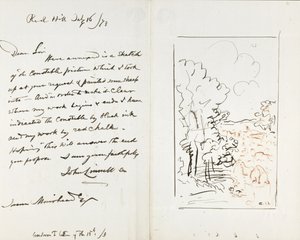 Red Hill July 16/72
Dear Sir
Have arranged is a sketch
of the Constable picture which I took
up at your request & painted some sheep
into — and in order to make it clear
where my work begins & ends I have
indicated the Constable by black ink
and my work by red chalk.
Hoping this will answer the end
you propose
I am yours faithfully
John Linnell Sr
James Muirhead Esq
letter of the 15th